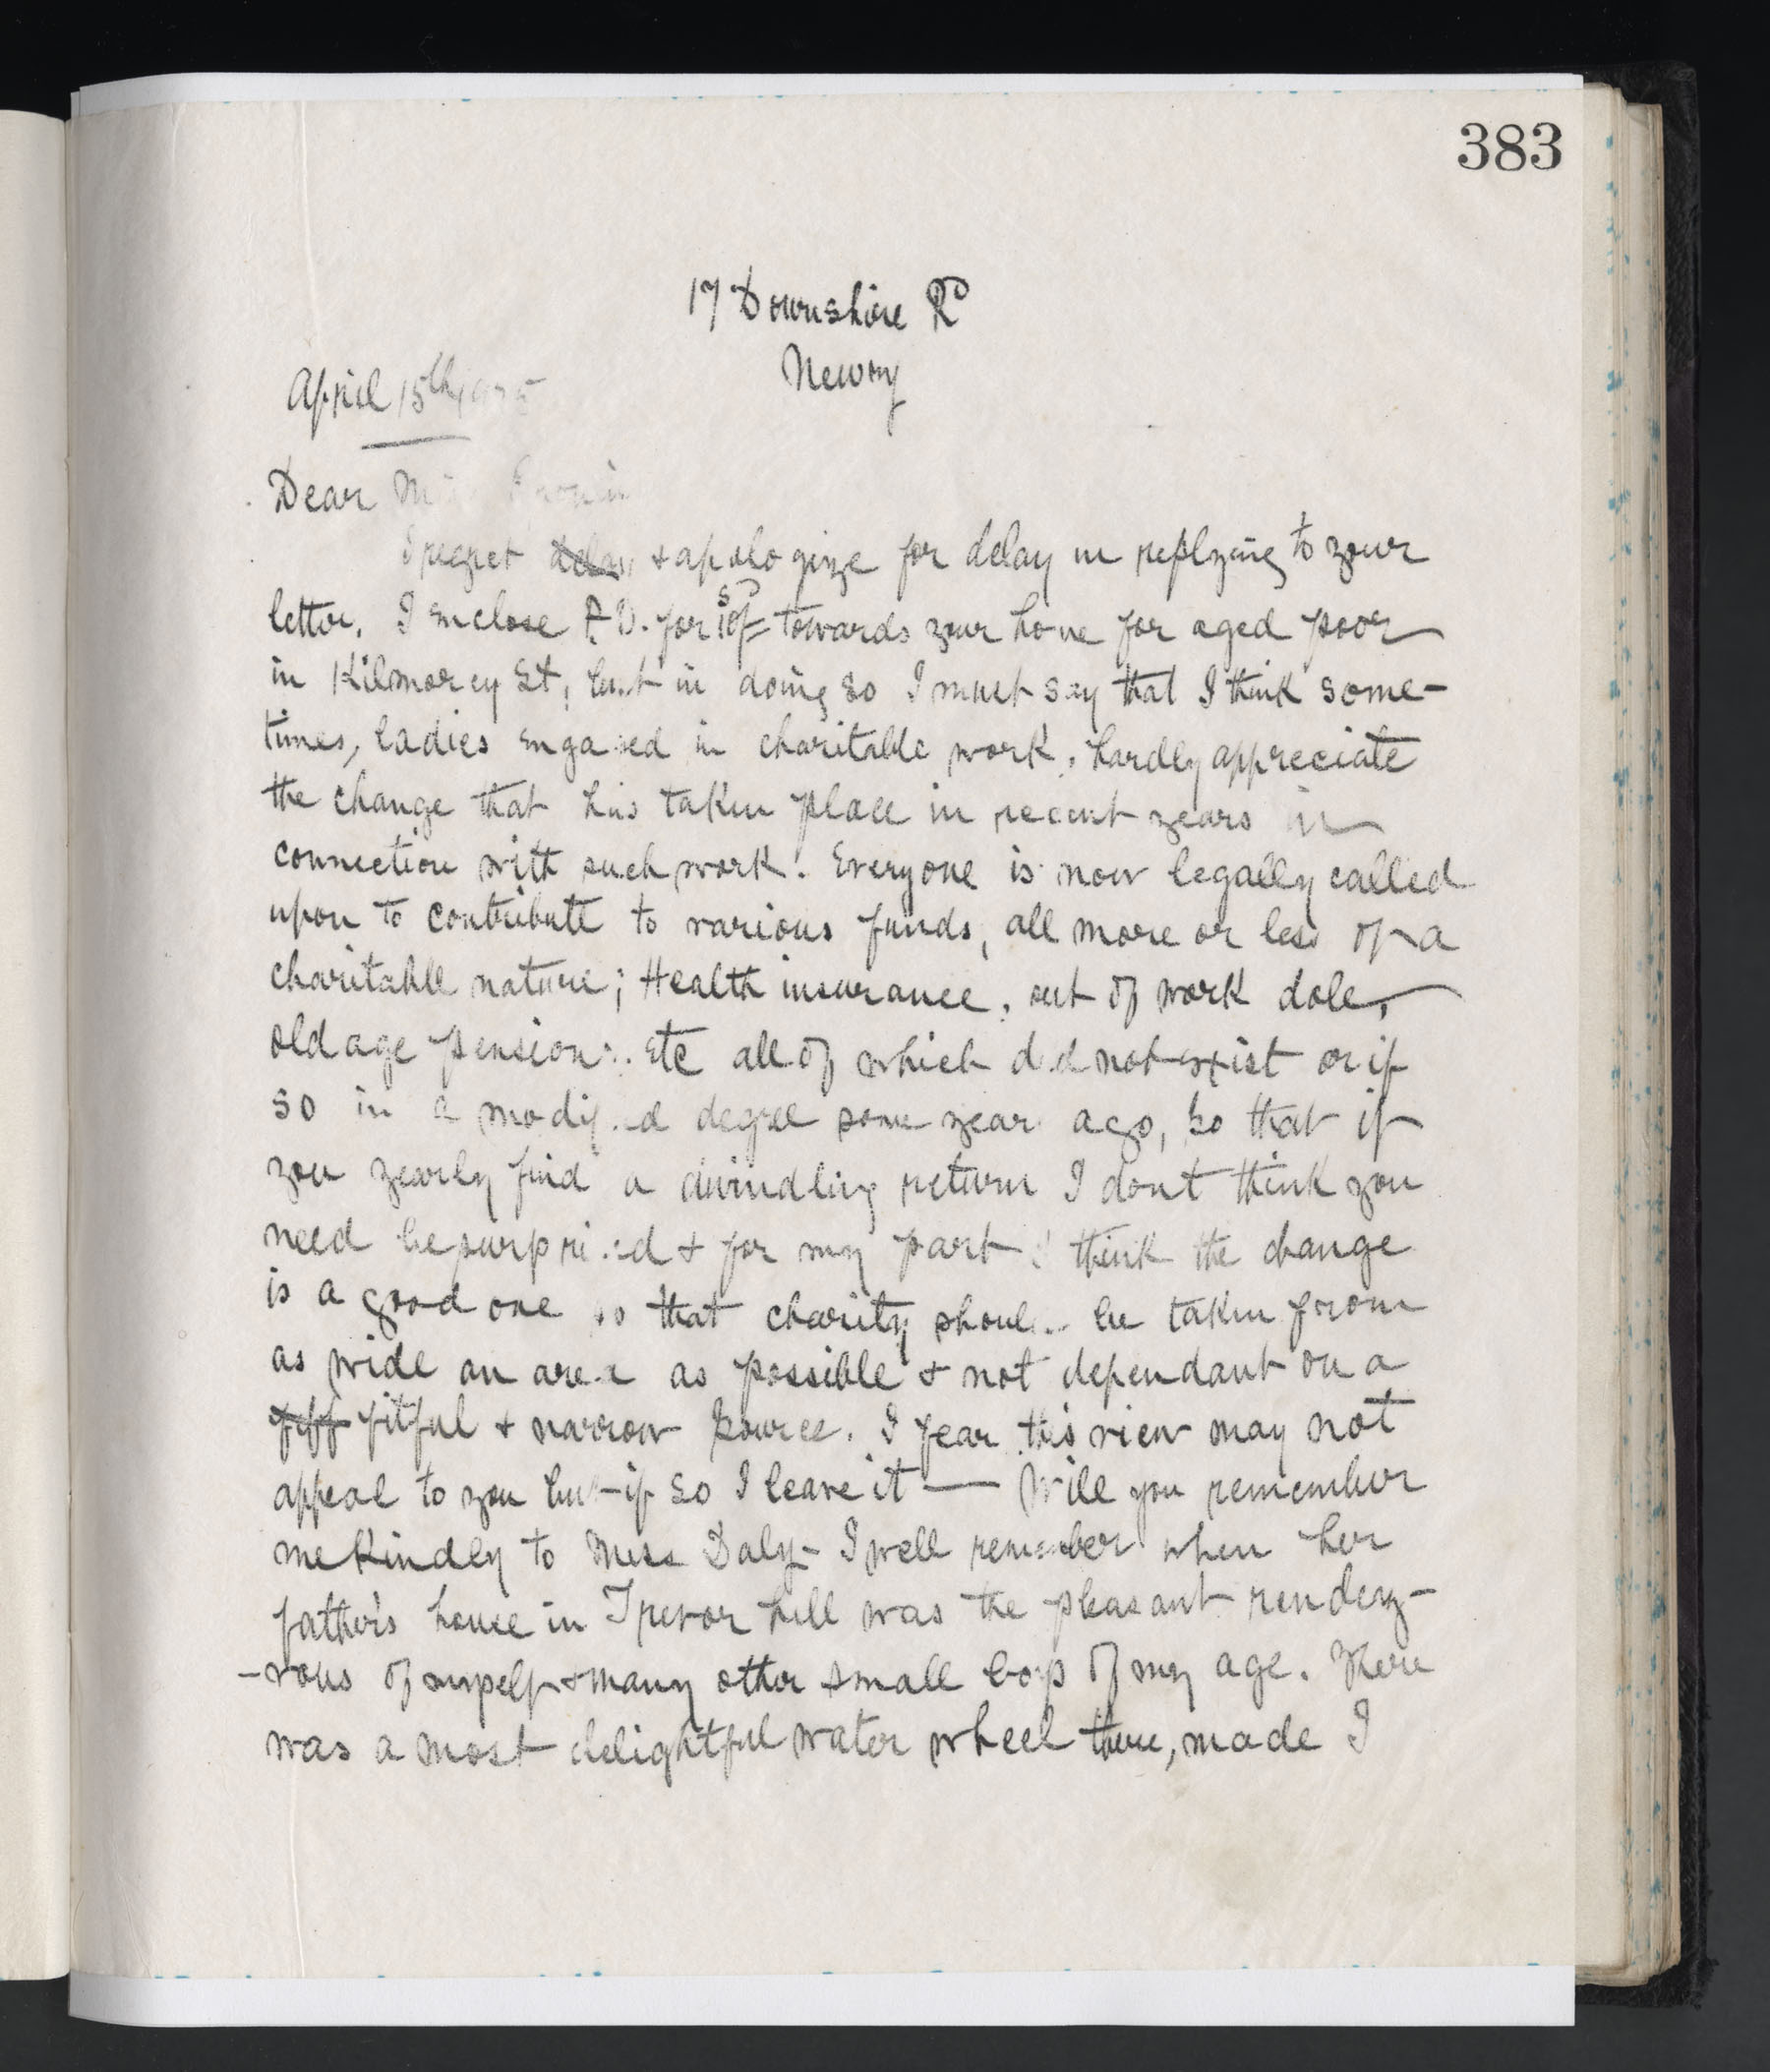 383
17 Downshire Rd
Newry
April 15th
Dear
I regret delay & apologize for delay in replying to your
letter. I enclose P.O. for 10/= towards your home for aged poor
in Kilmorey St, but in doing so I must say that I think some-
times, ladies engaged in charitable work, hardly appreciate
the change that has taken place in recent years in
connection with such work. Everyone is now legally called
upon to contribute to various funds, all more or less of a
charitable nature; Health insurance, out of work dole,
old age pensions. etc all of which did not exist or if
so in a modified degree some year ago, so that if
you yearly find a dwindling return I dont think you
need be surprised & for my part I think the change
is a good one so that charity should be taken from
as wide an area as possible & not dependant on a
fiff fitful & narrow source. I fear this view may not
appeal to you but if so I leave it — Will you remember
me kindly to Miss Daly - I well remember when her
father's house in Trevor hill was the pleasant rendez-
-vous of myself & many other small boys of my age. There
was a most delightful water wheel there, made I